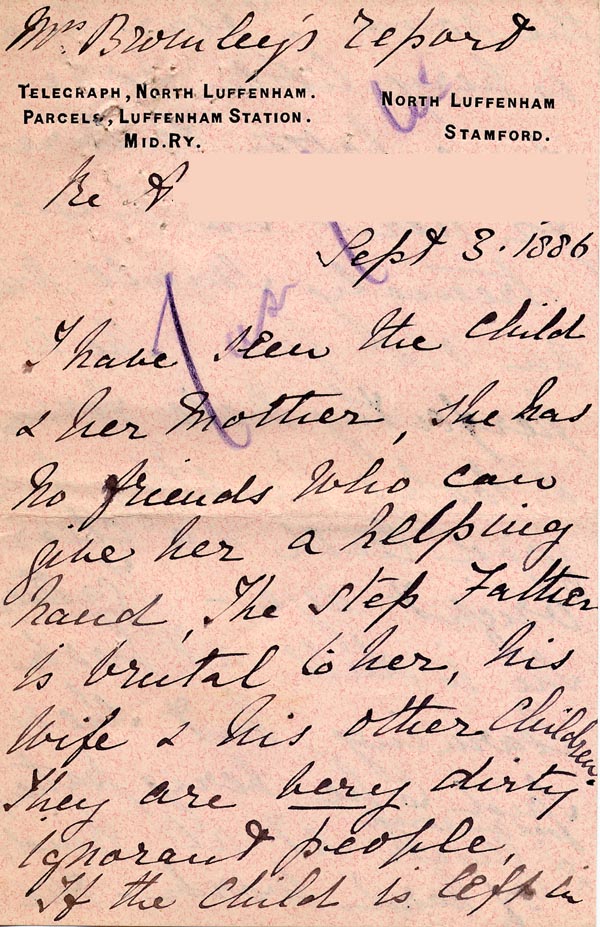 Mrs Bromley's report
TELEGRAPH, NORTH LUFFENHAM.
PARCELS, LUFFENHAM STATION.
MID. RY.
NORTH LUFFENHAM
STAMFORD.
Re A
Sept 3. 1886
I have seen the Child
& her Mother, She has
no friends who can
give her a helping
hand, The Step Father
is brutal to her, his
Wife & his other Children.
They are very dirty
ignorant people,
If the Child is left in